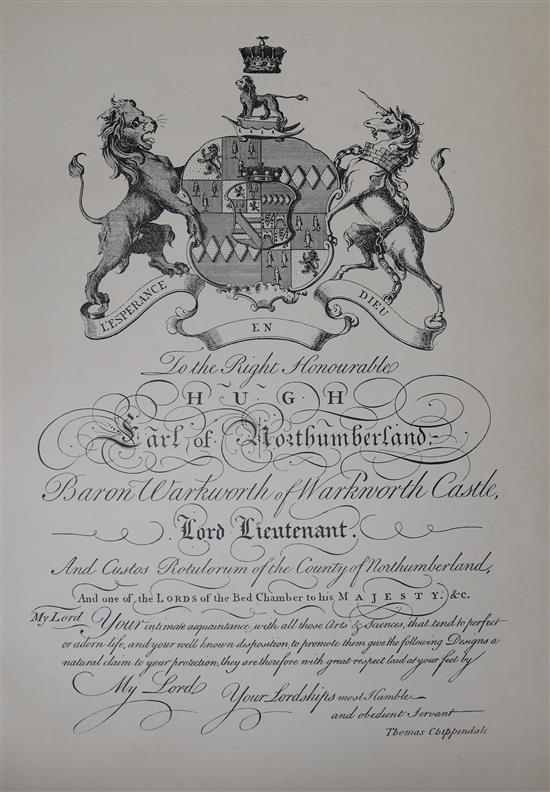 L'ESPERANCE
EN
DIEU
To the Right Honourable
HUGH
Earl of Northumberland;
Baron Warkworth of Warkworth Castle,
Lord Lieutenant.
And Custos Rotulorum of the County of Northumberland,
And one of the LORDS of the Bed Chamber to his MAJESTY. &c.
My Lord Your intimate acquaintance with all those Arts & Sciences, that tend to perfect
or adorn life, and your well known disposition to promote them give the following Designs a
natural claim to your protection, they are therefore with great respect laid at your feet by
My Lord Your Lordships most Humble
and obedient Servant
Thomas Chippendale.